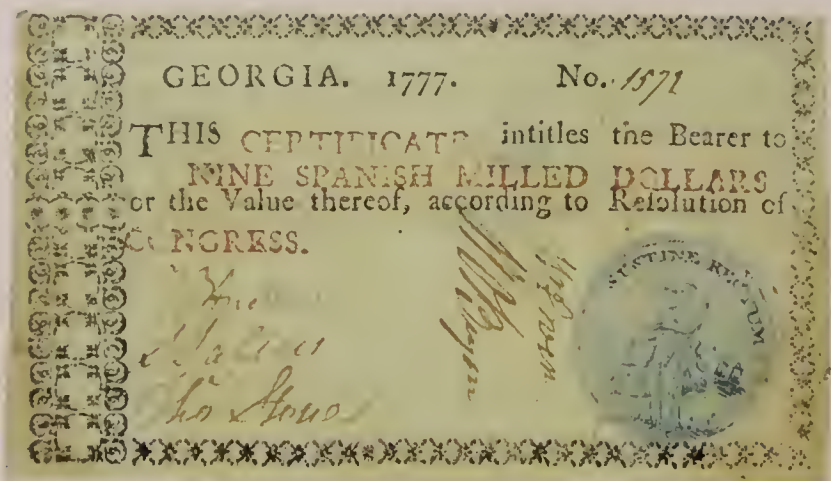 GEORGIA. 1777. No. 1571
THIS CERTIFICATE intitles the Bearer to
NINE SPANISH MILLED DOLLARS
or the Value thereof, according to Reſolution of
CONGRESS.
Tho Stone
SUSTINE RECTUM